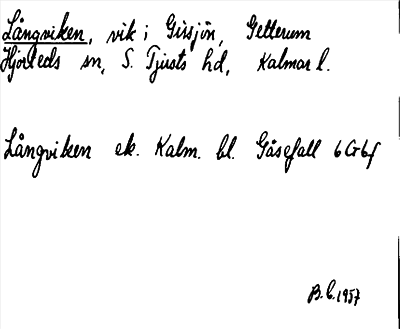 Långviken, vik i Gissjön, Getterum
Hjorteds sn, S. Tjusts hd, Kalmar l.
Långviken ek. Kalm. bl. Gåsefall 6G6f
B.C. 1957